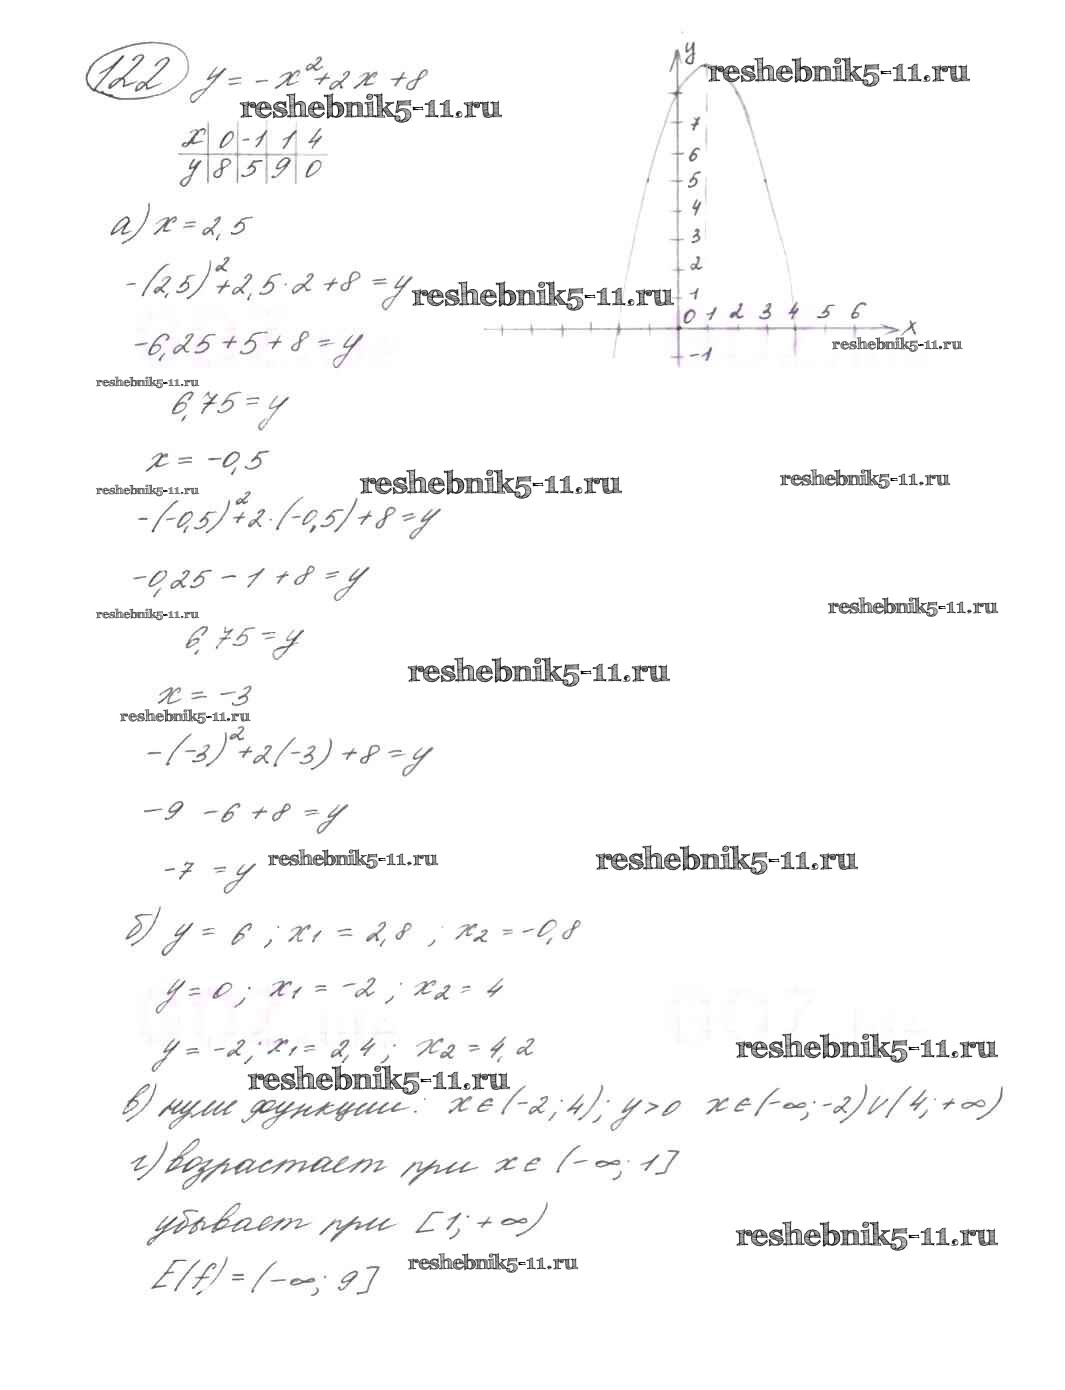 122 y = -x² + 2x + 8
reshebnik5-11.ru
reshebnik5-11.ru
x | 0 | -1 | 1 | 4
y | 8 | 5 | 9 | 0
y
7
6
5
4
3
2
1
0 1 2 3 4 5 6
x
-1
а) x = 2,5
-(2,5)² + 2,5 · 2 + 8 = y
reshebnik5-11.ru
-6,25 + 5 + 8 = y
reshebnik5-11.ru
reshebnik5-11.ru
6,75 = y
x = -0,5
reshebnik5-11.ru
reshebnik5-11.ru
reshebnik5-11.ru
-(-0,5)² + 2 · (-0,5) + 8 = y
-0,25 - 1 + 8 = y
reshebnik5-11.ru
reshebnik5-11.ru
6,75 = y
reshebnik5-11.ru
x = -3
reshebnik5-11.ru
-(-3)² + 2(-3) + 8 = y
-9 - 6 + 8 = y
-7 = y
reshebnik5-11.ru
reshebnik5-11.ru
б) y = 6 ; x1 = 2,8 ; x2 = -0,8
y = 0 ; x1 = -2 ; x2 = 4
y = -2 ; x1 = 2,4 ; x2 = 4,2
reshebnik5-11.ru
reshebnik5-11.ru
в) нули функции: x ∈ (-2; 4); y > 0 x ∈ (-∞; -2) ∪ (4; +∞)
г) возрастает при x ∈ (-∞; 1]
убывает при [1; +∞)
reshebnik5-11.ru
E(f) = (-∞; 9]
reshebnik5-11.ru